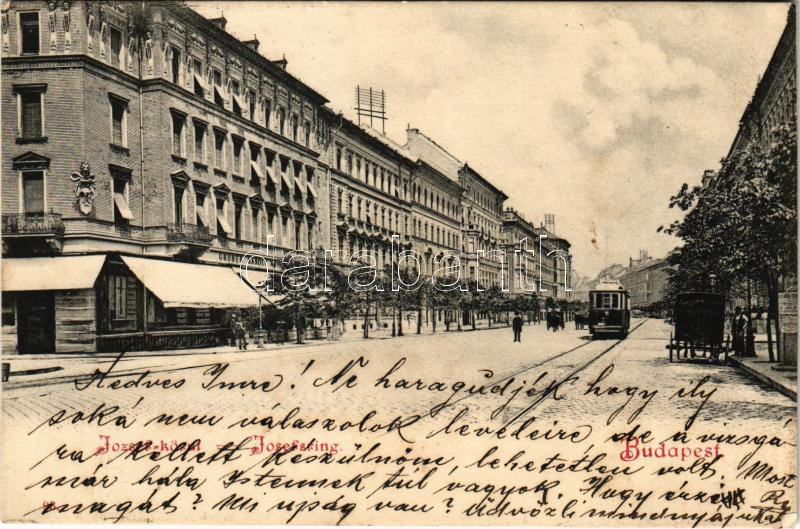 darabanth
Kedves Imre! Ne haragudjék hogy ily
soká nem válaszolok leveleire de a vizsgá
ra kellett készülnöm, lehetetlen volt Most
már hála Istennek túl vagyok. Hogy érzi
magát? Mi ujság van? Üdvözli mindnyájukat
József-körut — Josefsring.
Budapest.